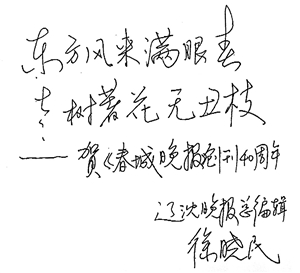 东方风来满眼春
老树著花无丑枝
——贺《春城晚报》创刊40周年
辽沈晚报总编辑
徐晓民